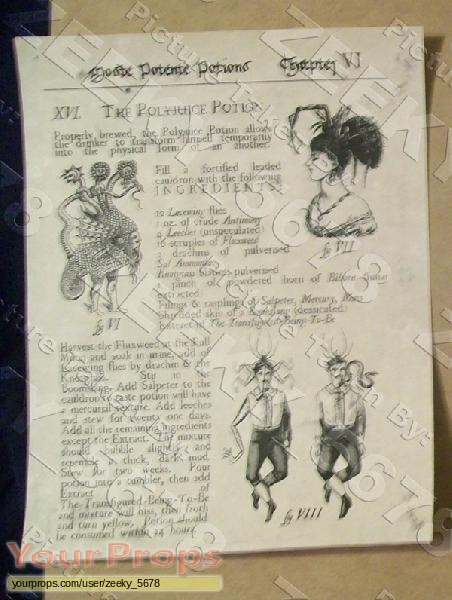 Moste Potente Potions Chapter VI
XVI. THE POLYJUICE POTION
Properly brewed, the Polyjuice Potion allows
the drinker to transform himself temporarily
into the physical form of an another.
Fill a fortified leaded
cauldron with the following
INGREDIENTS:
12 Lacewing flies
1 oz. of crude Antimony
4 Leeches (unspeculated)
16 scruples of Fluxweed
3 drachms of pulverised
Sal Ammoniac
pulverised
pinch of powdered horn of Bilfore
extracted
Filings & rasplings of Salpeter, Mercury, Mars
Shredded skin of a Boomslang (dessicated)
Extract of The Transfigured-Being-To-Be
fig VI
fig VII
Harvest the Fluxweed at the Full
Moon and soak in urine, add of
Lacewing flies by drachm & the
Knotgrass. Stir in the
Boomslang. Add Salpeter to the
cauldron to taste potion will have
a mercurial texture. Add leeches
and stew for twenty one days.
Add all the remaining ingredients
except the Extract. The mixture
should bubble slightly and
resemble a thick, dark mud.
Stew for two weeks. Pour
potion into a tumbler, then add
Extract of
The-Transfigured-Being-To-Be
and mixture will hiss, then froth
and turn yellow, Potion should
be consumed within 24 hours.
fig VIII
YourProps
yourprops.com/user/zeeky_5678
Picture Taken By: ZEEKY 5678